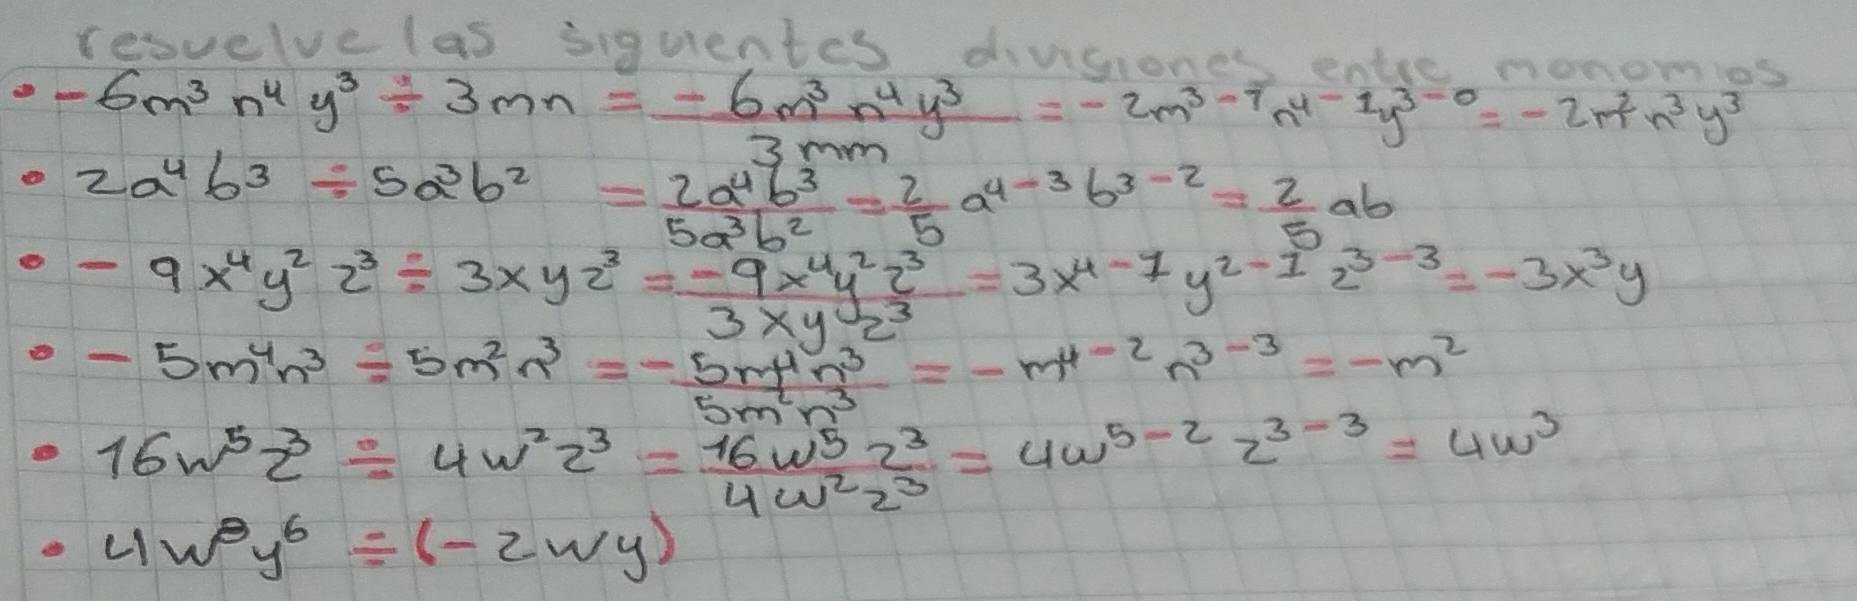 resuelve las siguientes divisiones entre monomios
• - 6m³ n⁴ y³ ÷ 3mn = - 6m³ n⁴ y³ / 3mm = - 2m³⁻¹ n⁴⁻¹ y³⁻⁰ = - 2m² n³ y³
• 2a⁴ b³ ÷ 5a³b² = 2a⁴b³ / 5a³b² = 2/5 a⁴⁻³ b³⁻² = 2/5 ab
• - 9x⁴y² z³ ÷ 3xyz³ = -9x⁴y² z³ / 3xyz³ = 3x⁴⁻¹ y²⁻¹ z³⁻³ = -3x³y
• - 5m⁴n³ ÷ 5m² n³ = - 5m⁴n³ / 5m²n³ = - m⁴⁻² n³⁻³ = -m²
• 16w⁵ z³ ÷ 4w² z³ = 16w⁵ z³ / 4w² z³ = 4w⁵⁻² z³⁻³ = 4w³
• 4w⁸y⁶ ÷ (- 2wy)